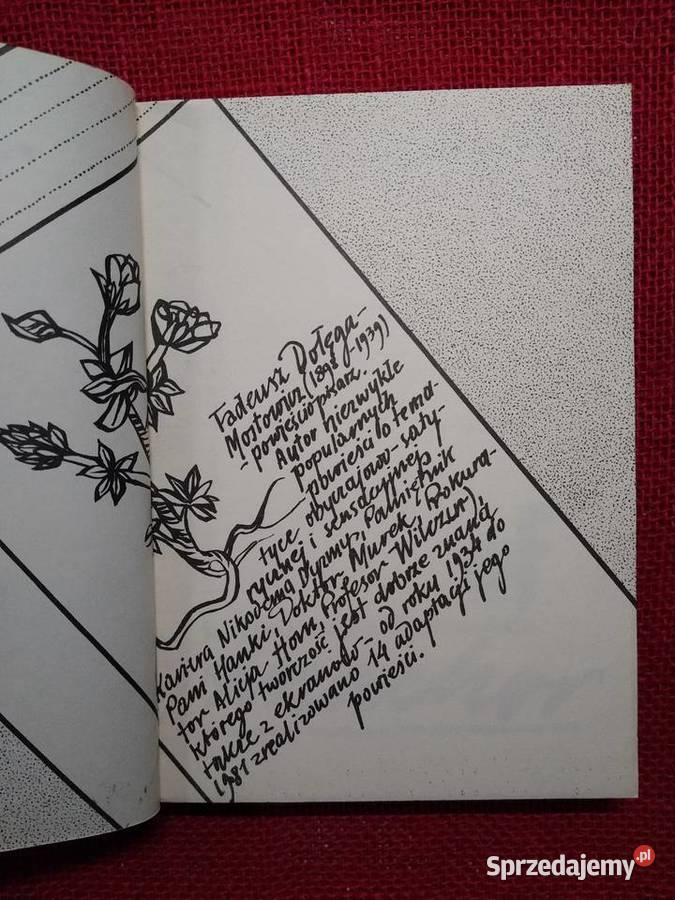 Tadeusz Dołęga-
Mostowicz (1898-1939)
- powieściopisarz.
Autor niezwykle
popularnych
powieści o tema-
tyce obyczajowo-saty-
rycznej i sensacyjnej
Kariera Nikodema Dyzmy, Pamiętnik
Pani Hanki, Doktor Murek, Prokura-
tor Alicja Horn, Profesor Wilczur),
którego twórczość jest dobrze znana
także z ekranów - od roku 1934 do
1981 zrealizowano 14 adaptacji jego
powieści.
Sprzedajemy.pl